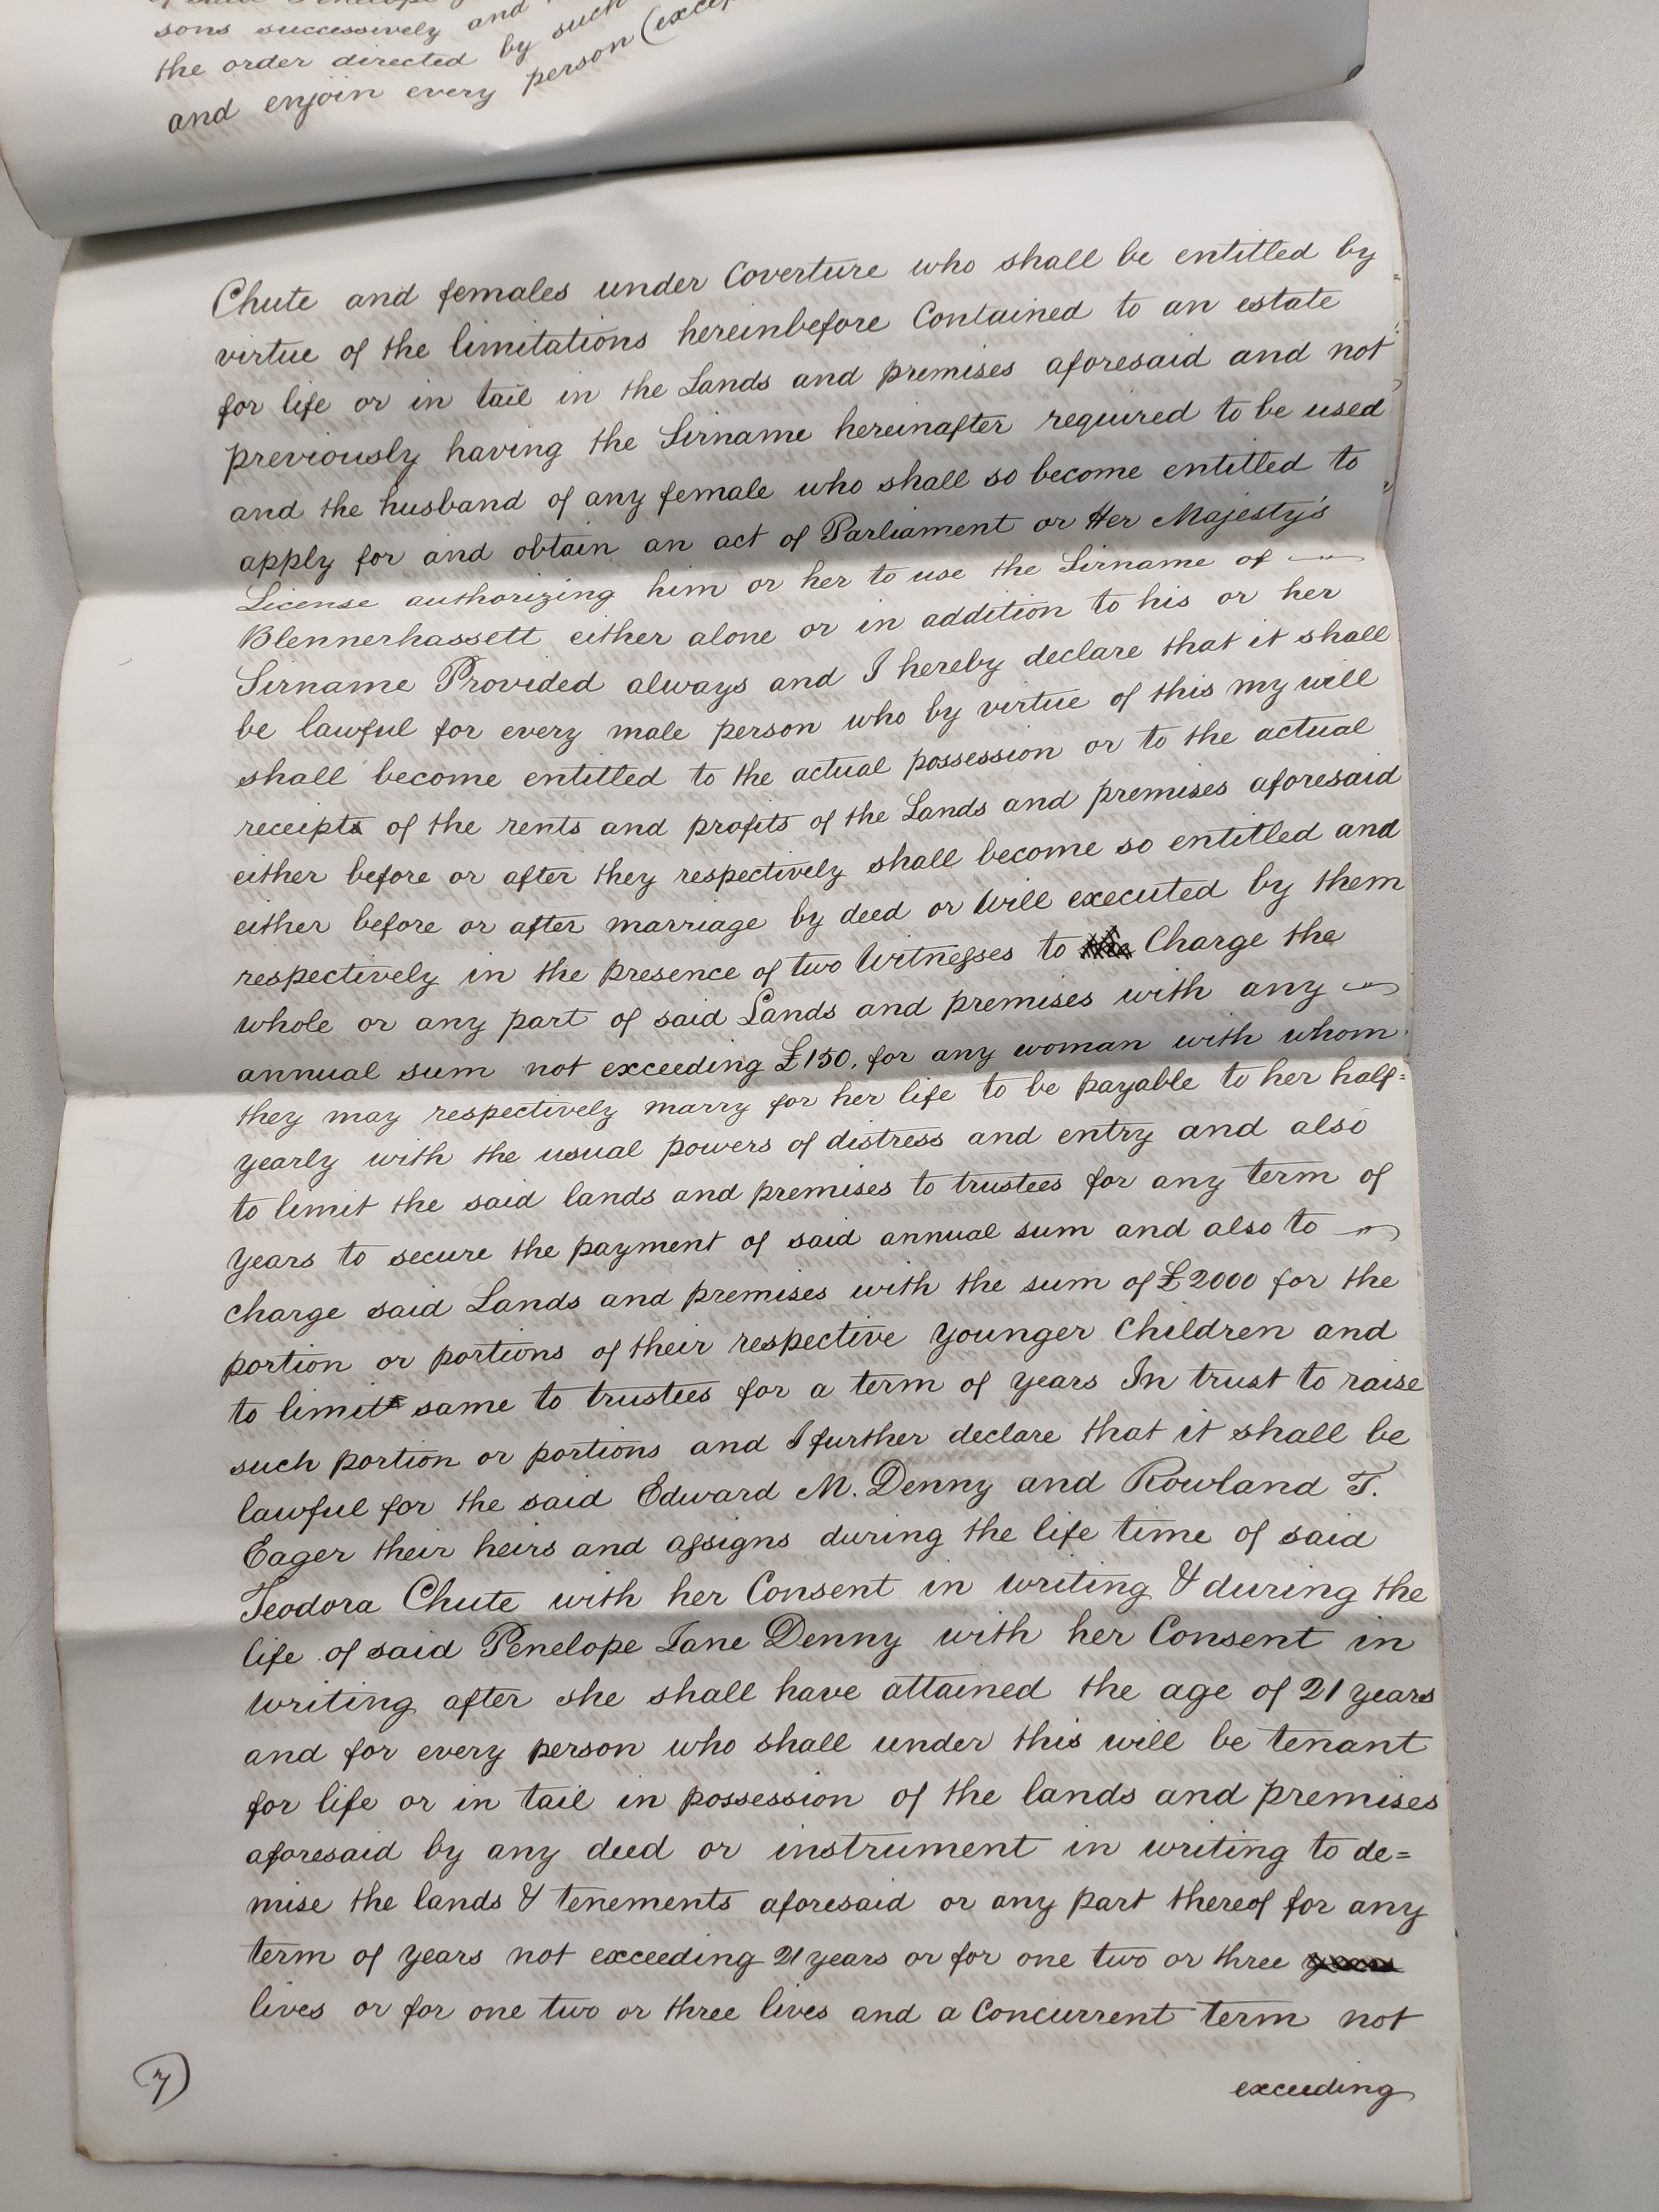 of said Penelope
sons successively and
the order directed by such
and enjoin every person (except
Chute and females under Coverture who shall be entitled by
virtue of the limitations hereinbefore Contained to an estate
for life or in tail in the Lands and premises aforesaid and not
previously having the Sirname hereinafter required to be used
and the husband of any female who shall so become entitled to
apply for and obtain an act of Parliament or Her Majesty's
License authorizing him or her to use the Sirname of
Blennerhassett either alone or in addition to his or her
Sirname Provided always and I hereby declare that it shall
be lawful for every male person who by virtue of this my will
shall become entitled to the actual possession or to the actual
receipts of the rents and profits of the Lands and premises aforesaid
either before or after they respectively shall become so entitled and
either before or after marriage by deed or Will executed by them
respectively in the presence of two Witnesses to Charge the
whole or any part of said Lands and premises with any
annual sum not exceeding £150, for any woman with whom
they may respectively marry for her life to be payable to her half=
yearly with the usual powers of distress and entry and also
to limit the said lands and premises to trustees for any term of
years to secure the payment of said annual sum and also to
charge said Lands and premises with the sum of £2000 for the
portion or portions of their respective younger Children and
to limit same to trustees for a term of years In trust to raise
such portion or portions and I further declare that it shall be
lawful for the said Edward M. Denny and Rowland T.
Eager their heirs and assigns during the life time of said
Teodora Chute with her Consent in writing & during the
life of said Penelope Jane Denny with her Consent in
writing after she shall have attained the age of 21 years
and for every person who shall under this will be tenant
for life or in tail in possession of the lands and premises
aforesaid by any deed or instrument in writing to de=
mise the lands & tenements aforesaid or any part thereof for any
term of years not exceeding 21 years or for one two or three years
lives or for one two or three lives and a Concurrent term not
exceeding
7